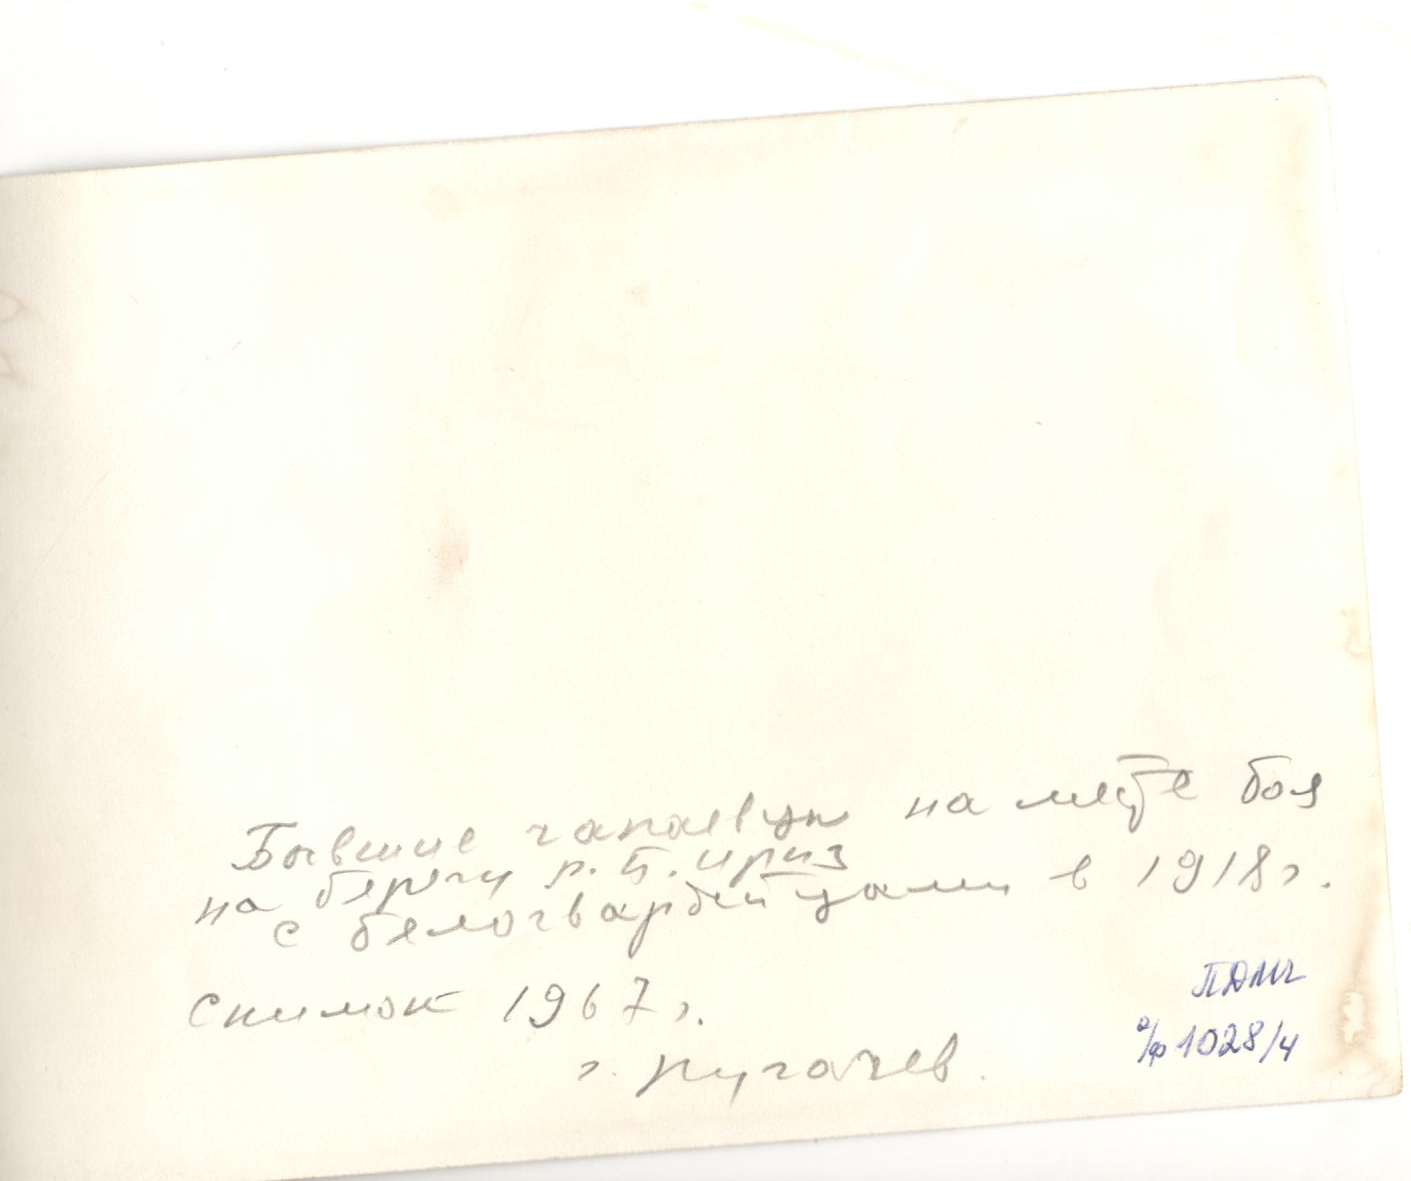 Бывшие чапаевцы на месте боя
на берегу р. Б. Иргиз
с белогвардейцами в 1918 г.
Снимок 1967 г.
г. Пугачев.
ПДМЧ
о/ф 1028/4